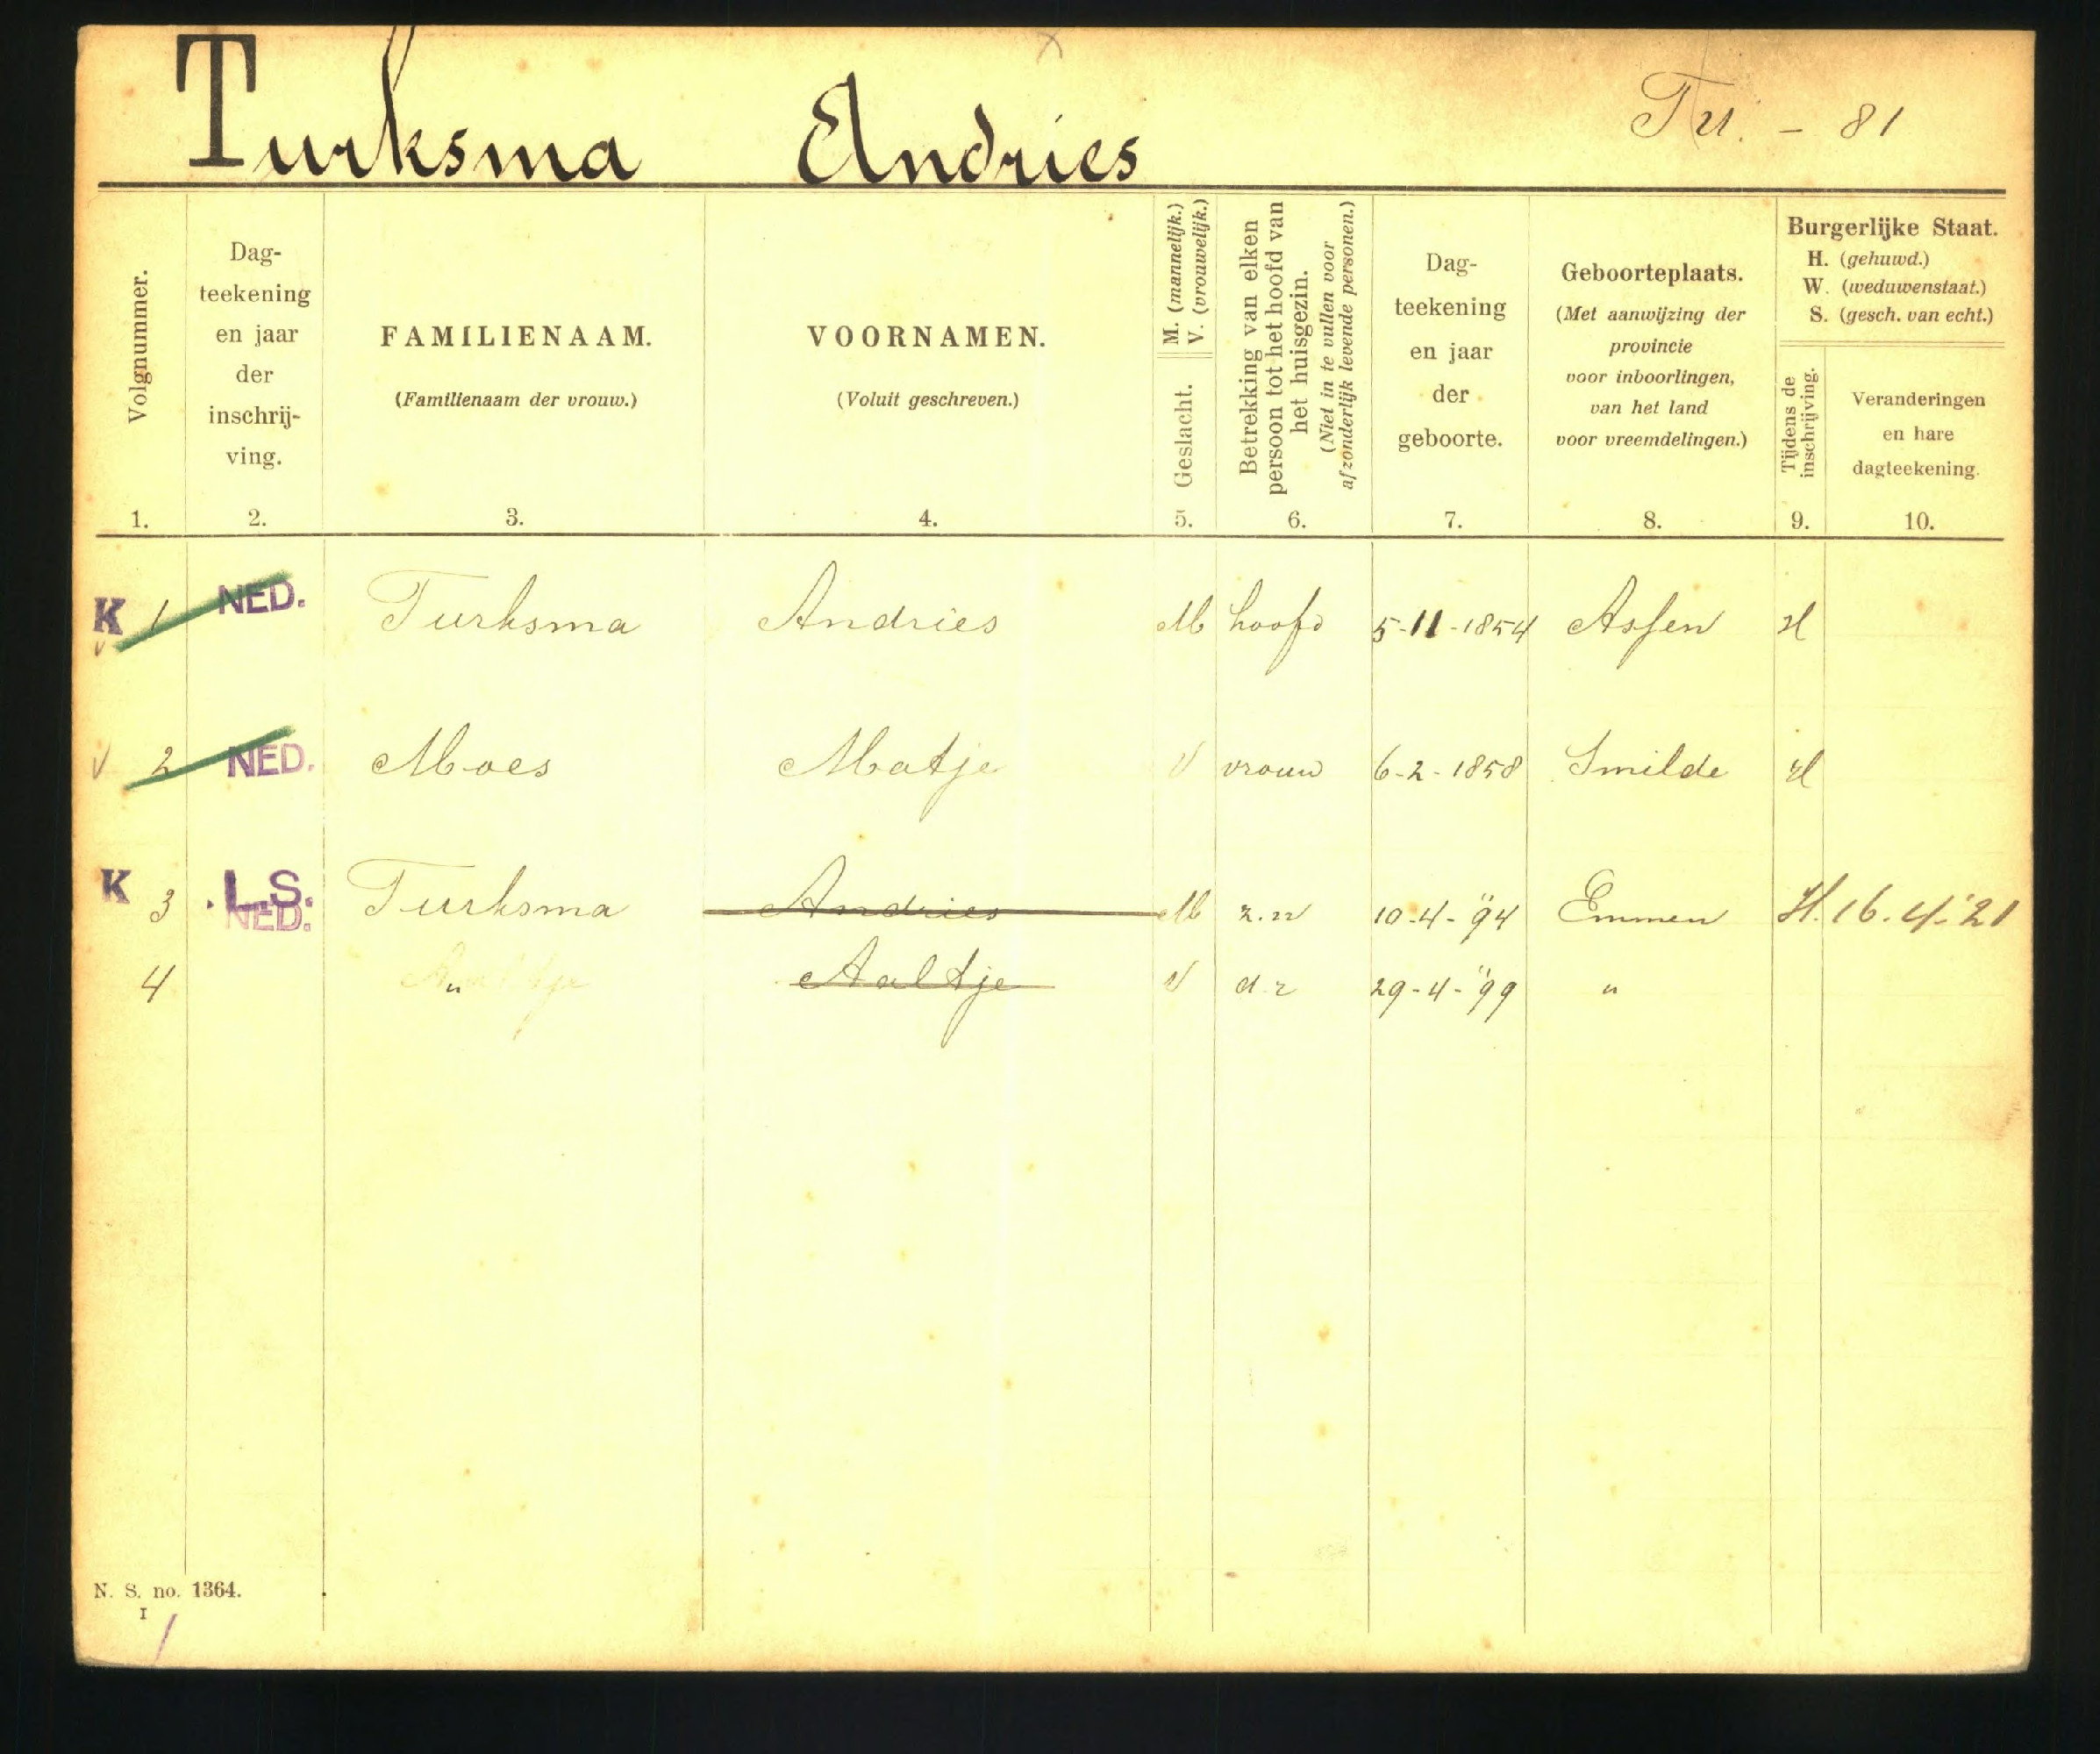 Turksma Andries Tu. - 81
Volgnummer.
1.
Dag-
teekening
en jaar
der
inschrij-
ving.
2.
FAMILIENAAM.
(Familienaam der vrouw.)
3.
VOORNAMEN.
(Voluit geschreven.)
4.
M. (mannelijk.)
V. (vrouwelijk.)
Geslacht.
5.
Betrekking van elken
persoon tot het hoofd van
het huisgezin.
(Niet in te vullen voor
afzonderlijk levende personen.)
6.
Dag-
teekening
en jaar
der
geboorte.
7.
Geboorteplaats.
(Met aanwijzing der
provincie
voor inboorlingen,
van het land
voor vreemdelingen.)
8.
Burgerlijke Staat.
H. (gehuwd.)
W. (weduwenstaat.)
S. (gesch. van echt.)
Tijdens de
inschrijving.
9.
Veranderingen
en hare
dagteekening.
10.
K 1 NED. Turksma Andries M hoofd 5-11-1854 Assen H
V 2 NED. Moes Matje V vrouw 6-2-1858 Smilde H
K 3 L.S. NED. Turksma Andries M z.n 10-4-"94 Emmen H. 16.4.'21
4 " Aaltje V d.r 29-4-"99 "
N. S. no. 1364.
I